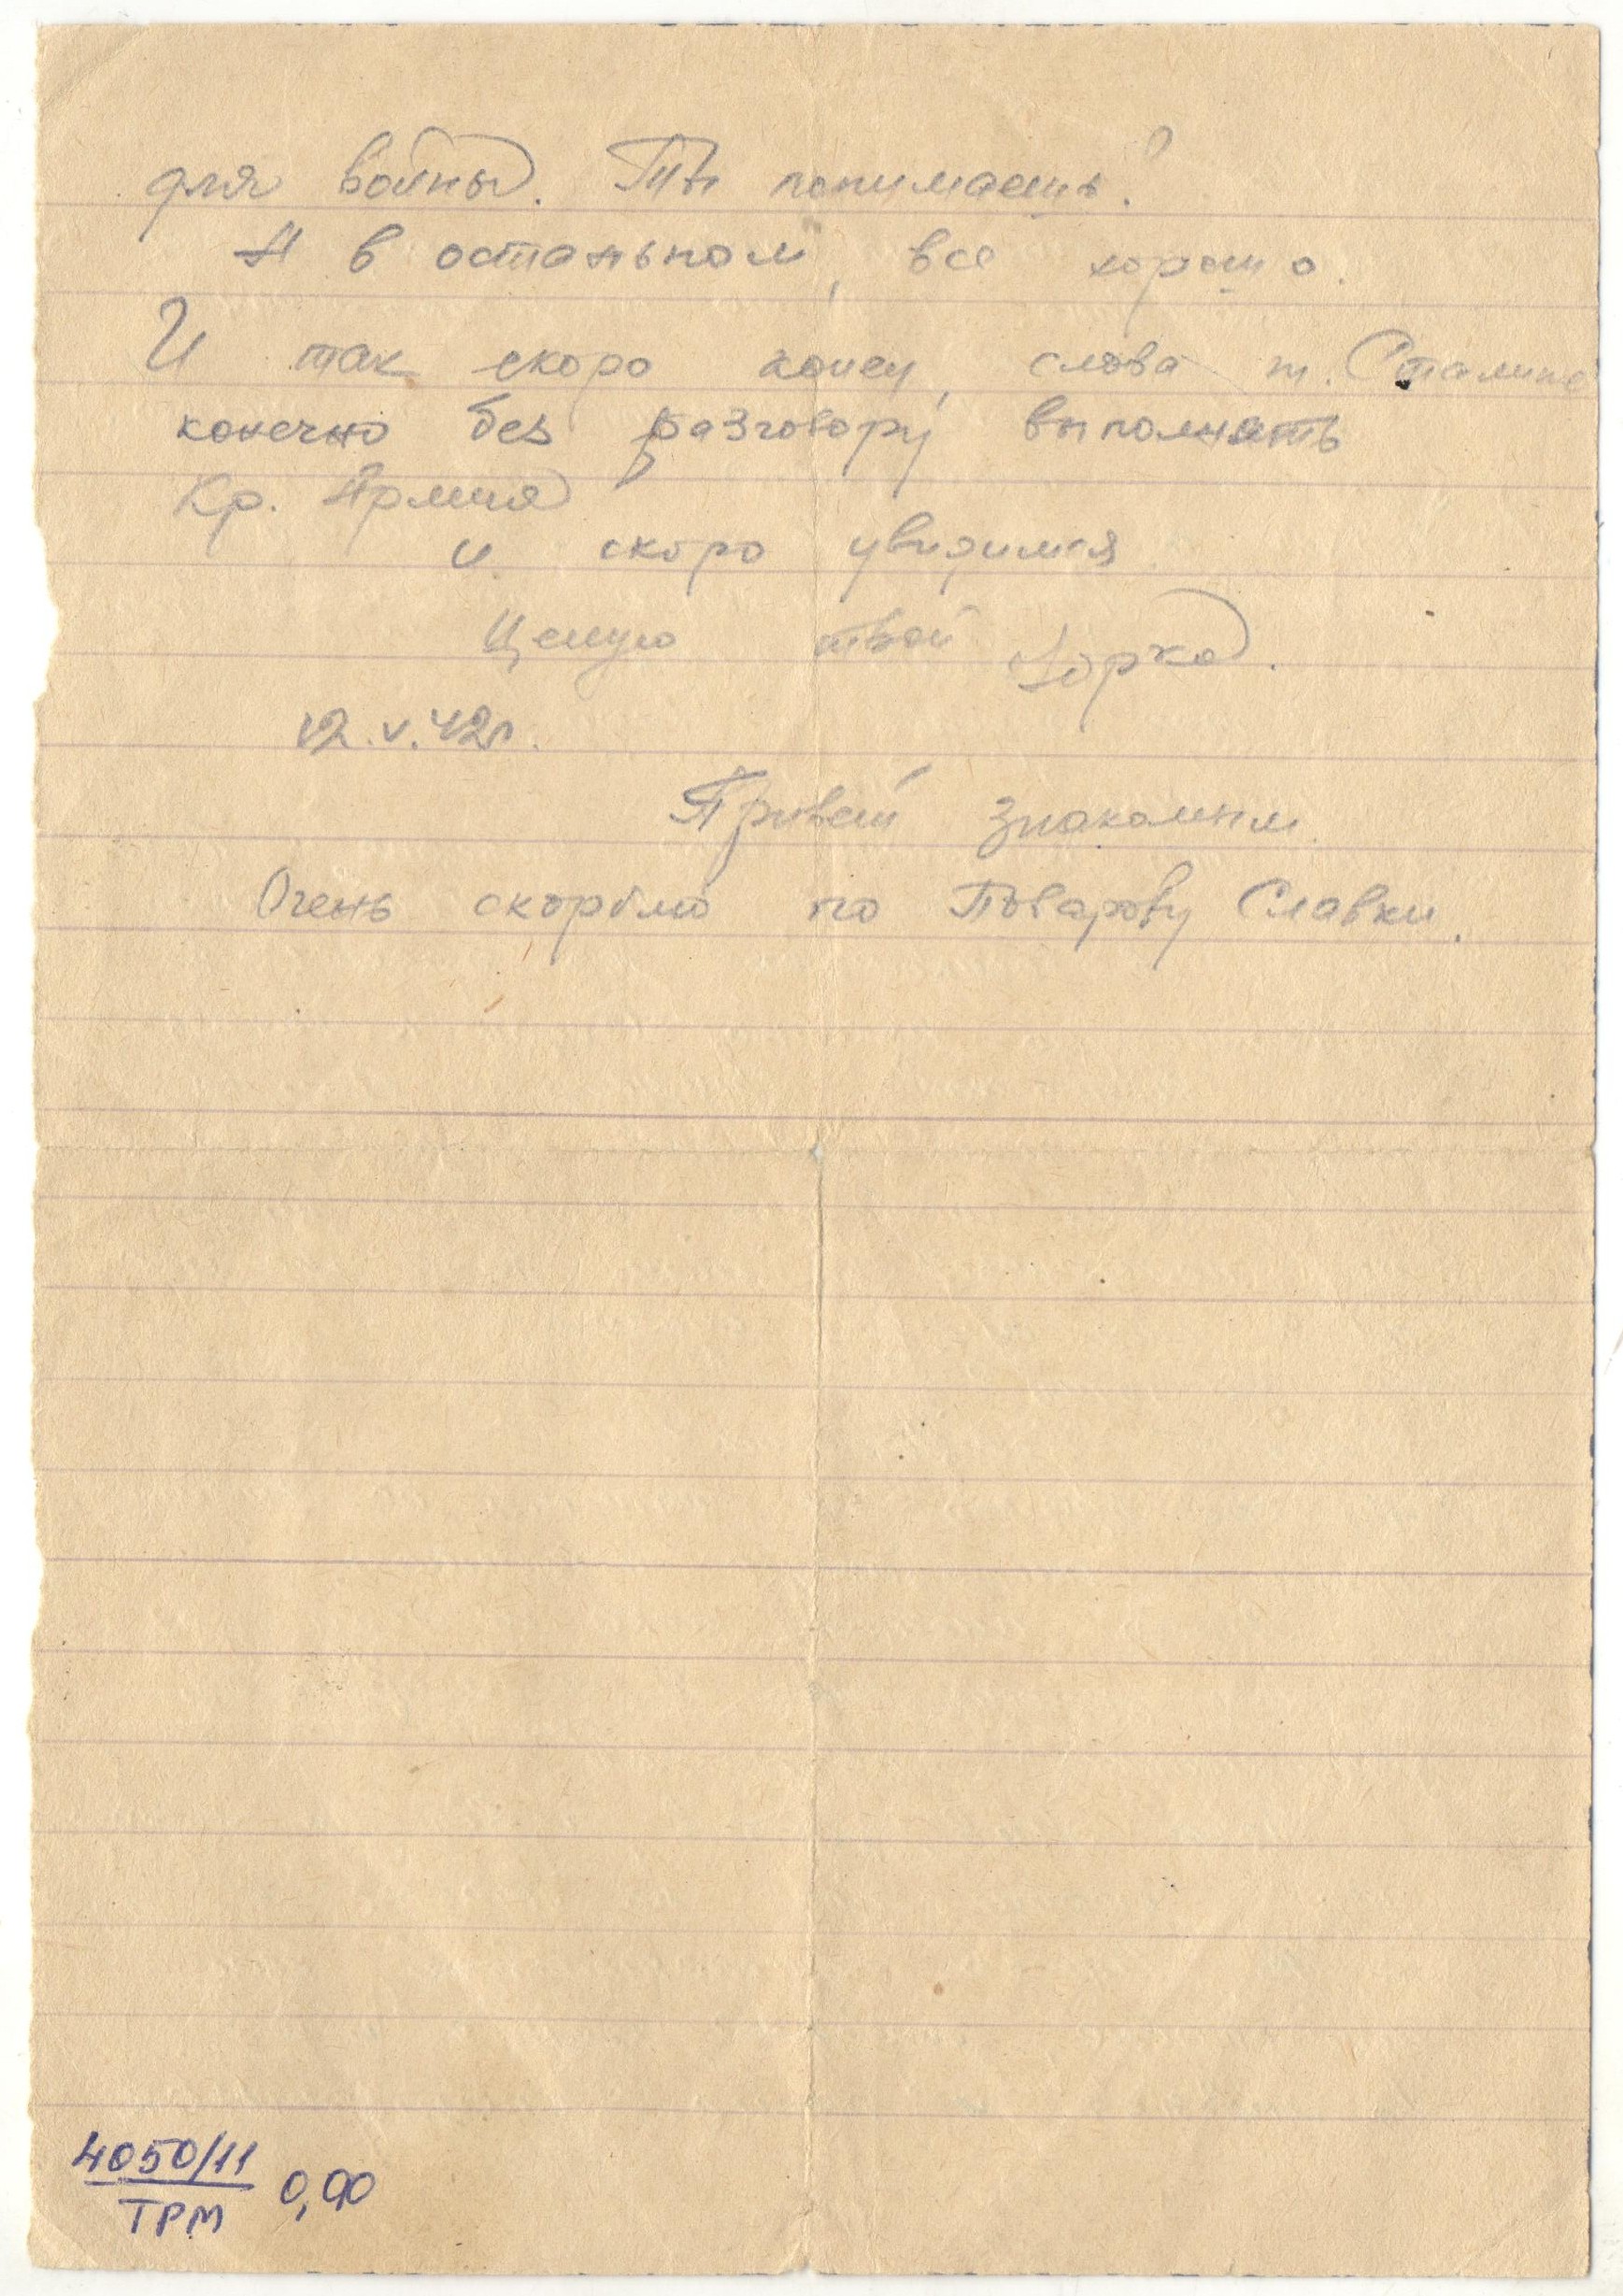 для войны. Ты понимаешь?
А в остальном, все хорошо.
И так скоро конец, слова т. Сталина
конечно без разговору выполнять
Кр. Армия
и скоро увидимся
Целую твой Юрка.
12.V.42г.
Привет знакомым
Очень скорблю по Поварову Славки.
4050/11
ТРМ 0,90